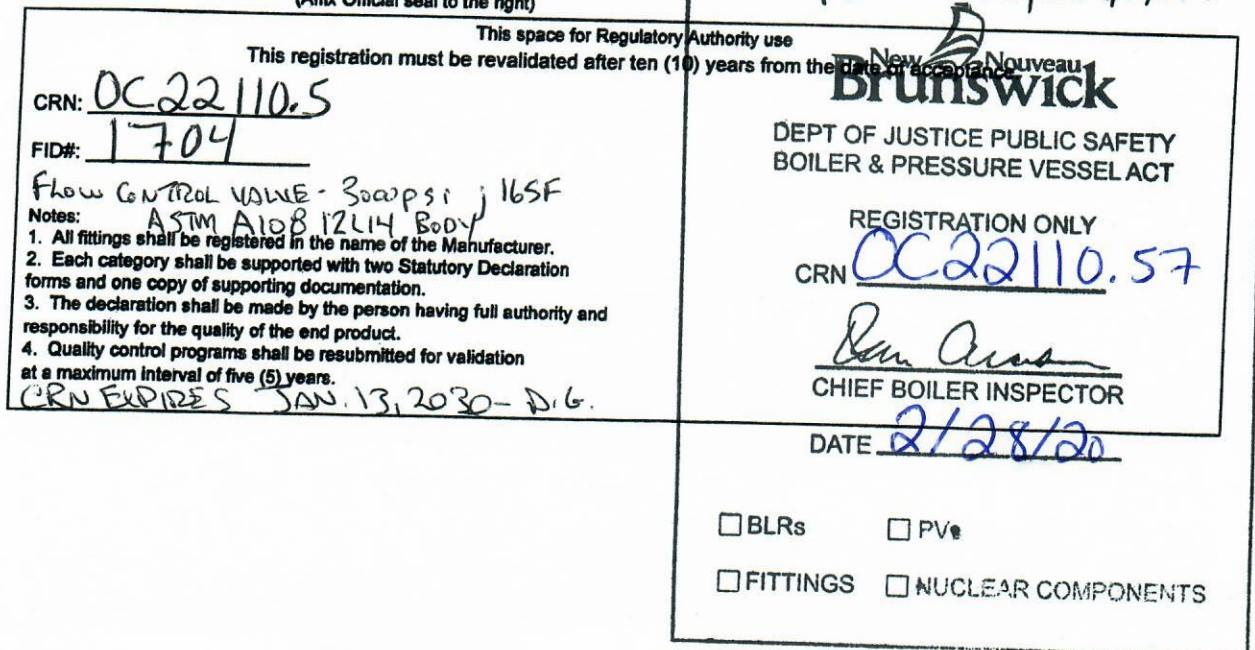 (Affix Official seal to the right)
This space for Regulatory Authority use
This registration must be revalidated after ten (10) years from the date of acceptance.
CRN: OC22110.5
FID#: 1704
FLOW CONTROL VALVE - 3000psi ; 165F
ASTM A108 12L14 BODY
Notes:
1. All fittings shall be registered in the name of the Manufacturer.
2. Each category shall be supported with two Statutory Declaration
forms and one copy of supporting documentation.
3. The declaration shall be made by the person having full authority and
responsibility for the quality of the end product.
4. Quality control programs shall be resubmitted for validation
at a maximum interval of five (5) years.
CRN EXPIRES JAN. 13, 2030 - D.G.
New Nouveau
Brunswick
DEPT OF JUSTICE PUBLIC SAFETY
BOILER & PRESSURE VESSEL ACT
REGISTRATION ONLY
CRN OC22110.57
CHIEF BOILER INSPECTOR
DATE 2/28/20
BLRs PVs
FITTINGS NUCLEAR COMPONENTS